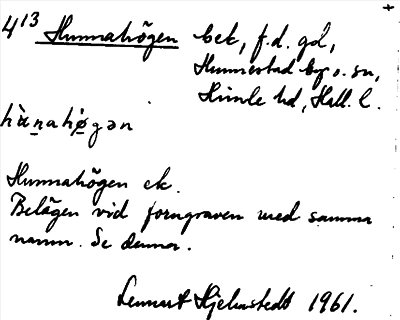 4¹³ Hunnahögen bet, f.d. gd,
Hunnestad by o. sn,
Himle hd, Hall. l.
hùnahø̀gən
Hunnahögen ek.
Belägen vid forngraven med samma
namn. Se denna.
Lennart Hjelmstedt 1961.